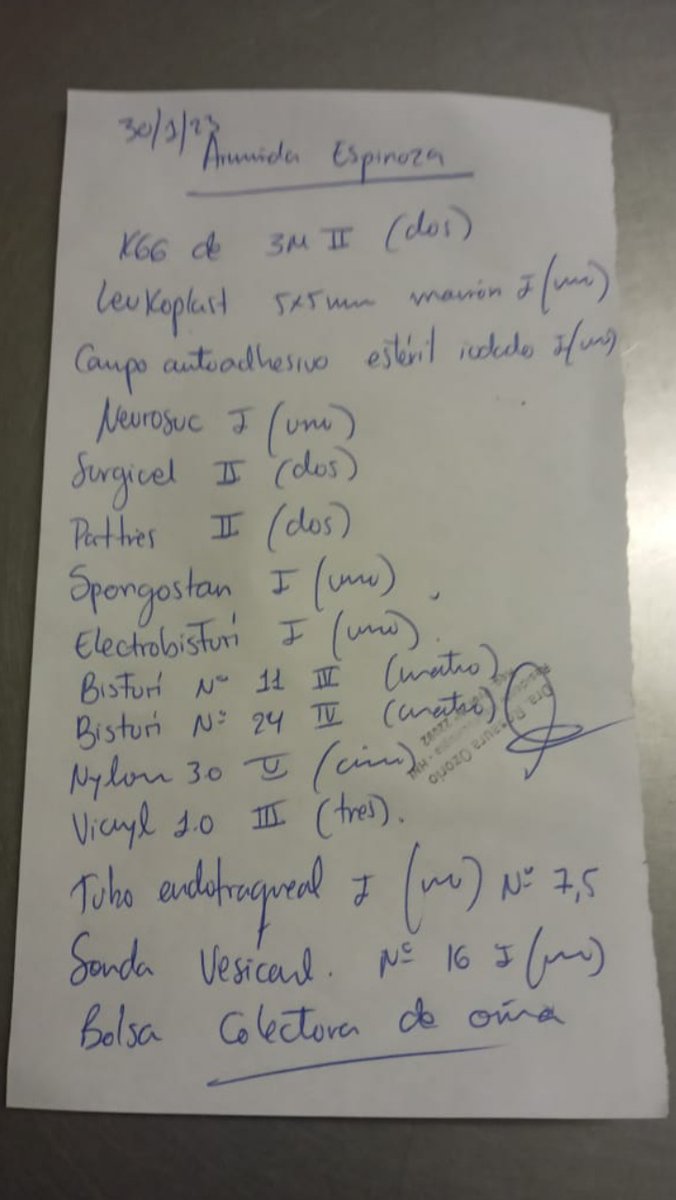 30/1/23
Arminda Espinoza
K66 de 3M II (dos)
Leukoplast 5x5mm marrón I (uno)
Campo autoadhesivo estéril iodado I (uno)
Neurosuc I (uno)
Surgicel II (dos)
Patties II (dos)
Spongostan I (uno)
Electrobisturí I (uno).
Bisturí Nº 11 IV (cuatro)
Bisturí Nº 24 IV (cuatro)
Nylon 3.0 V (cinco)
Vicryl 1.0 III (tres).
Tubo endotraqueal I (uno) Nº 7,5
Sonda Vesical. Nº 16 I (uno)
Bolsa Colectora de orina
Dra. Ozorio